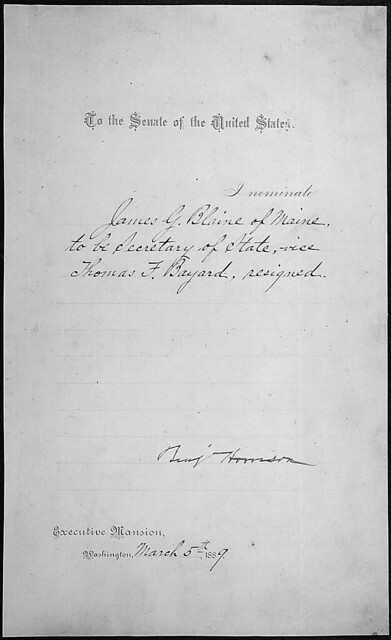 To the Senate of the United States.
I nominate
James G. Blaine of Maine,
to be Secretary of State, vice
Thomas F. Bayard, resigned.
Benj Harrison
Executive Mansion,
Washington, March 5th 1889.